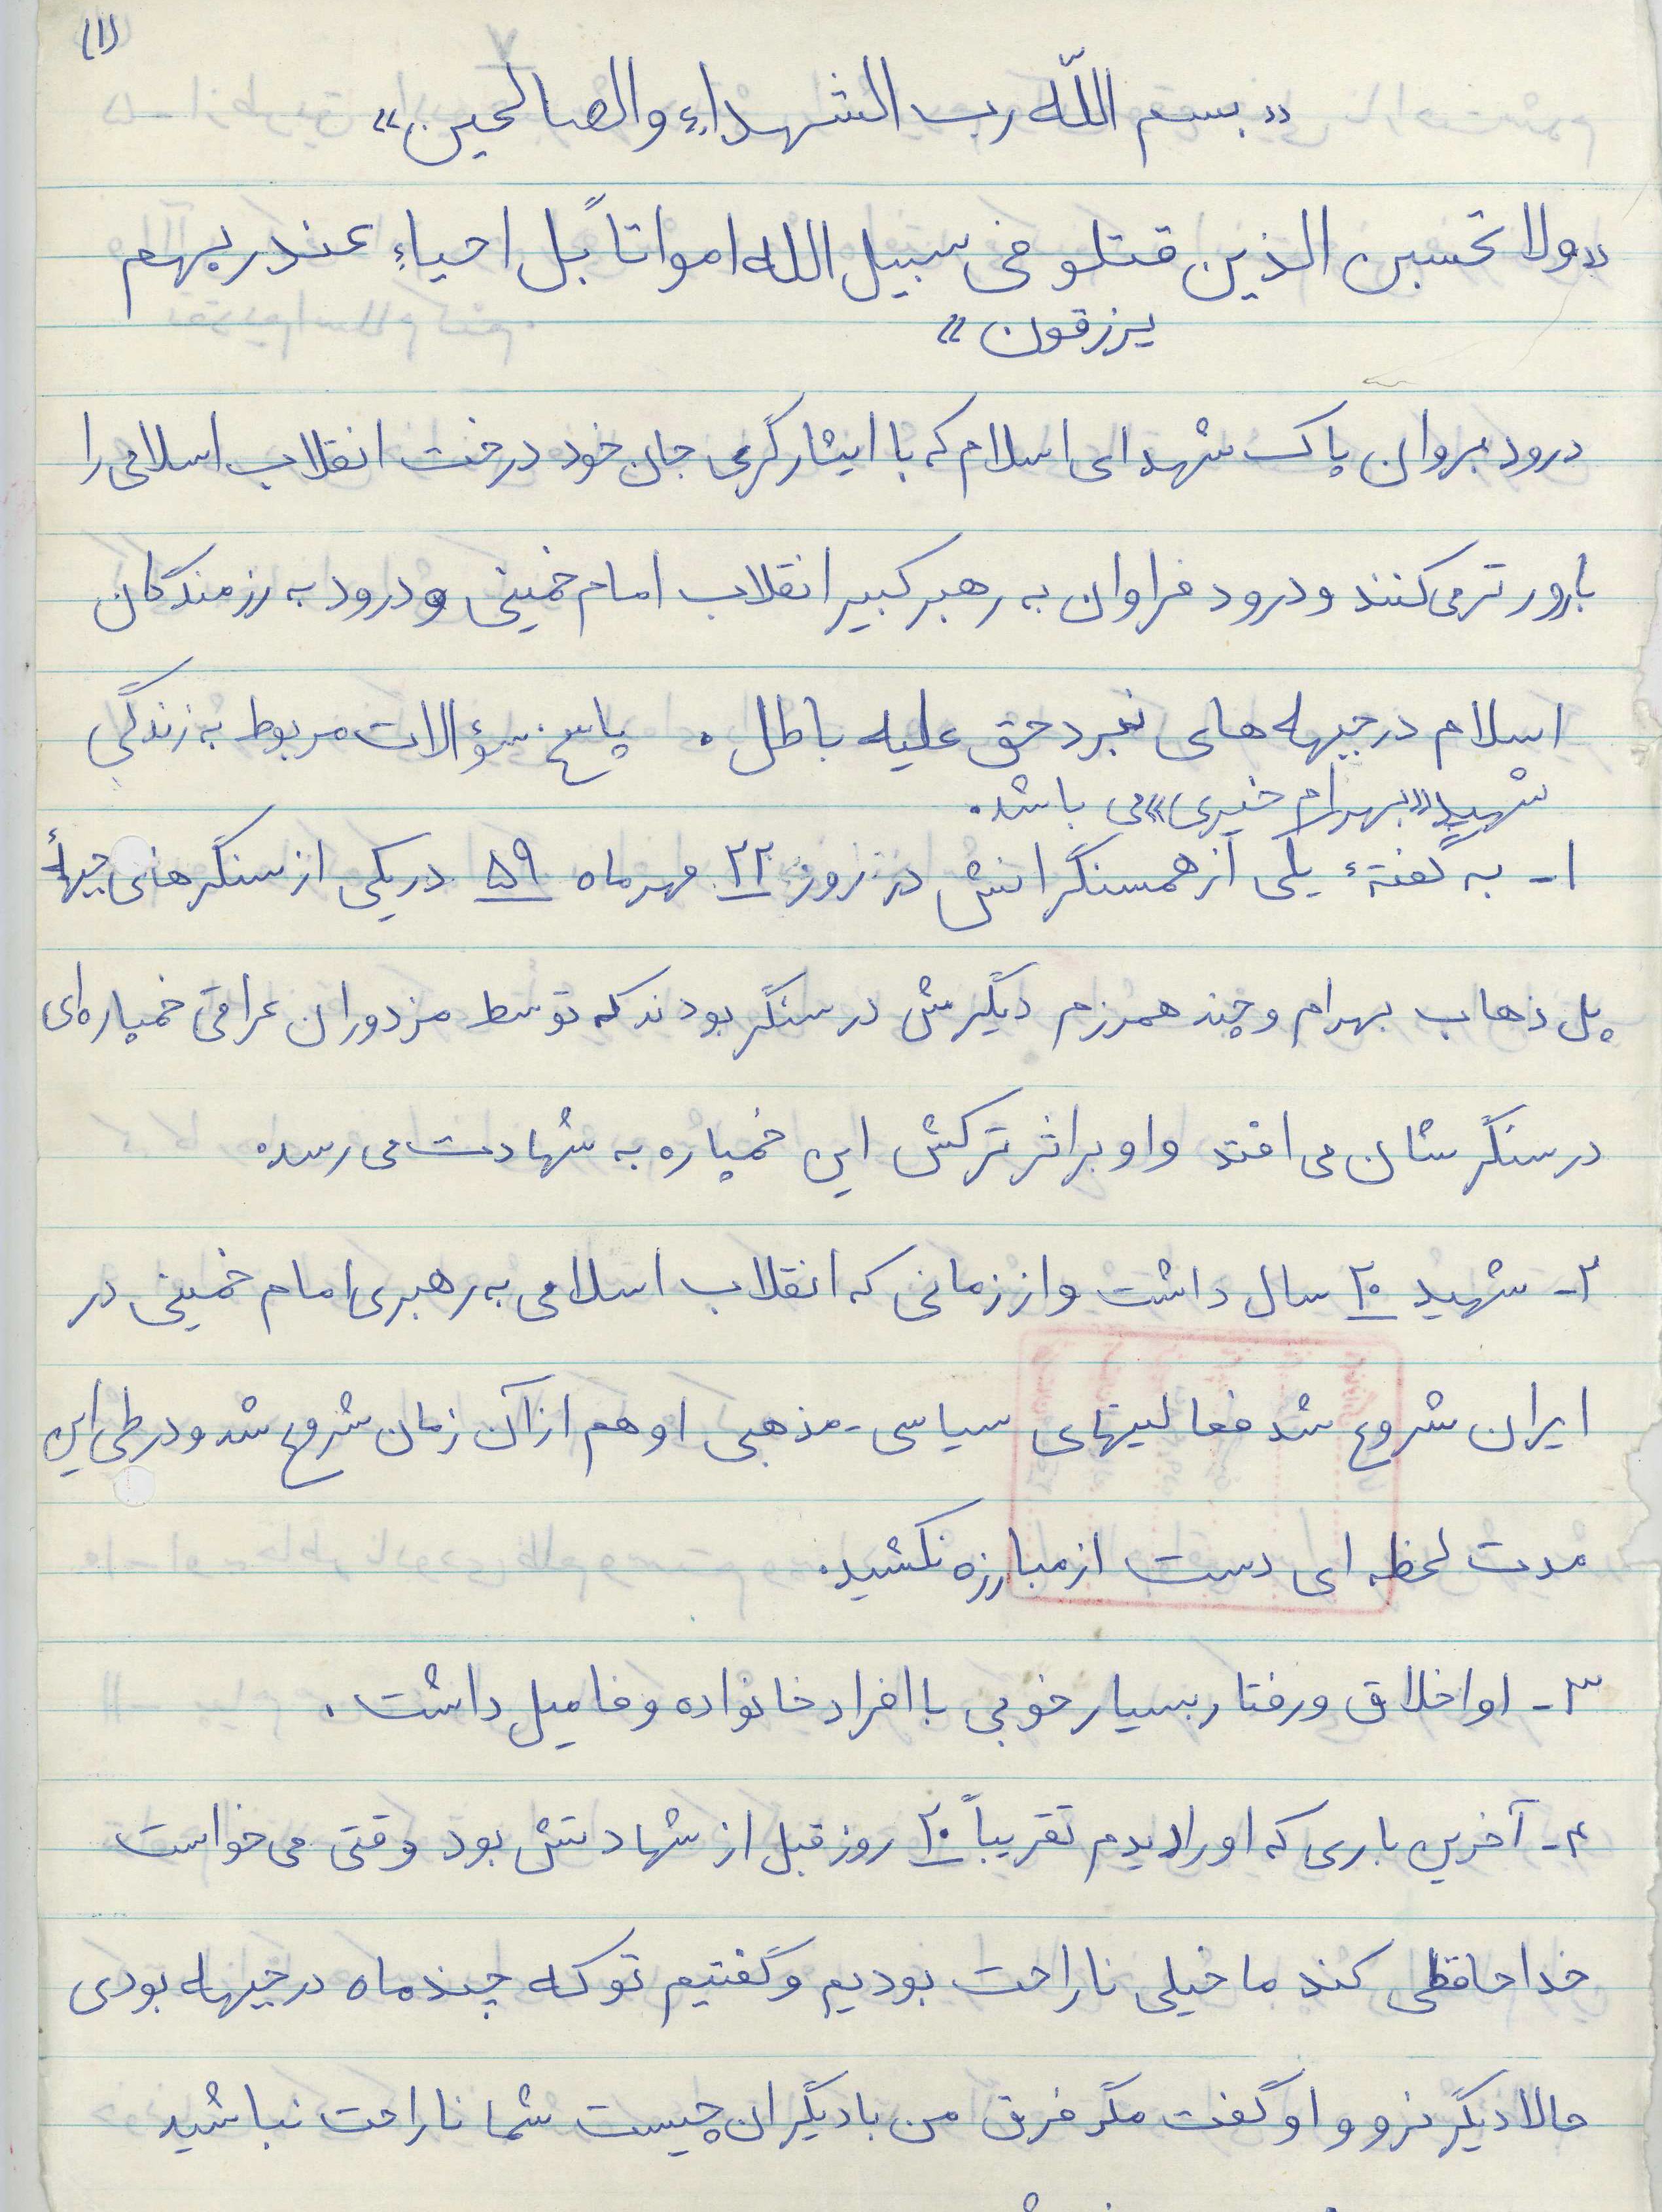 (۱)
«بسم اللّه رب الشهداء والصالحین»
«ولا تحسبن الذین قتلو فی سبیل الله امواتاً بل احیاء عند ربهم
یرزقون»
درود بروان پاک شهدای اسلام که با ایثارگری جان خود درخت انقلاب اسلامی را
بارورتر می‌کنند و درود فراوان به رهبر کبیر انقلاب امام خمینی و درود به رزمندگان
اسلام در جبهه های نبرد حق علیه باطل. پاسخ سؤالات مربوط به زندگی
شهید «بهرام خیری» می باشد.
۱- به گفتهٔ یکی از همسنگرانش در روز ۲۲ مهرماه ۵۹ در یکی از سنگرهای جبههٔ
پل ذهاب بهرام و چند همرزم دیگرش در سنگر بودند که توسط مزدوران عراقی خمپاره‌ای
در سنگرشان می افتد و او بر اثر ترکش این خمپاره به شهادت می رسد.
۲- شهید ۲۰ سال داشت و از زمانی که انقلاب اسلامی به رهبری امام خمینی در
ایران شروع شد فعالیتهای سیاسی-مذهبی او هم از آن زمان شروع شد و در طی این
مدت لحظه ای دست از مبارزه نکشید.
۳- او اخلاق و رفتار بسیار خوبی با افراد خانواده و فامیل داشت.
۴- آخرین باری که او را دیدم تقریباً ۲۰ روز قبل از شهادتش بود وقتی می خواست
خداحافظی کند ما خیلی ناراحت بودیم و گفتیم تو که چند ماه در جبهه بودی
حالا دیگر نرو و او گفت مگر فرق من با دیگران چیست شما ناراحت نباشید